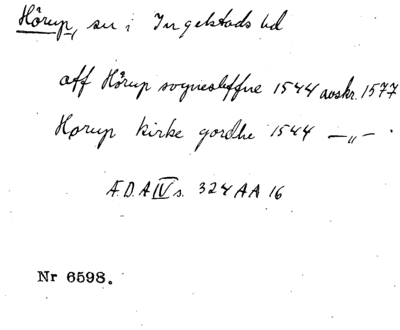 Hörup, sn i Ingelstads hd
aff Hörup sognesteffne 1544 avskr. 1577
Hørup kirke gordhe 1544 —„—
Æ.D.A IV s. 324 AA 16
Nr 6598.